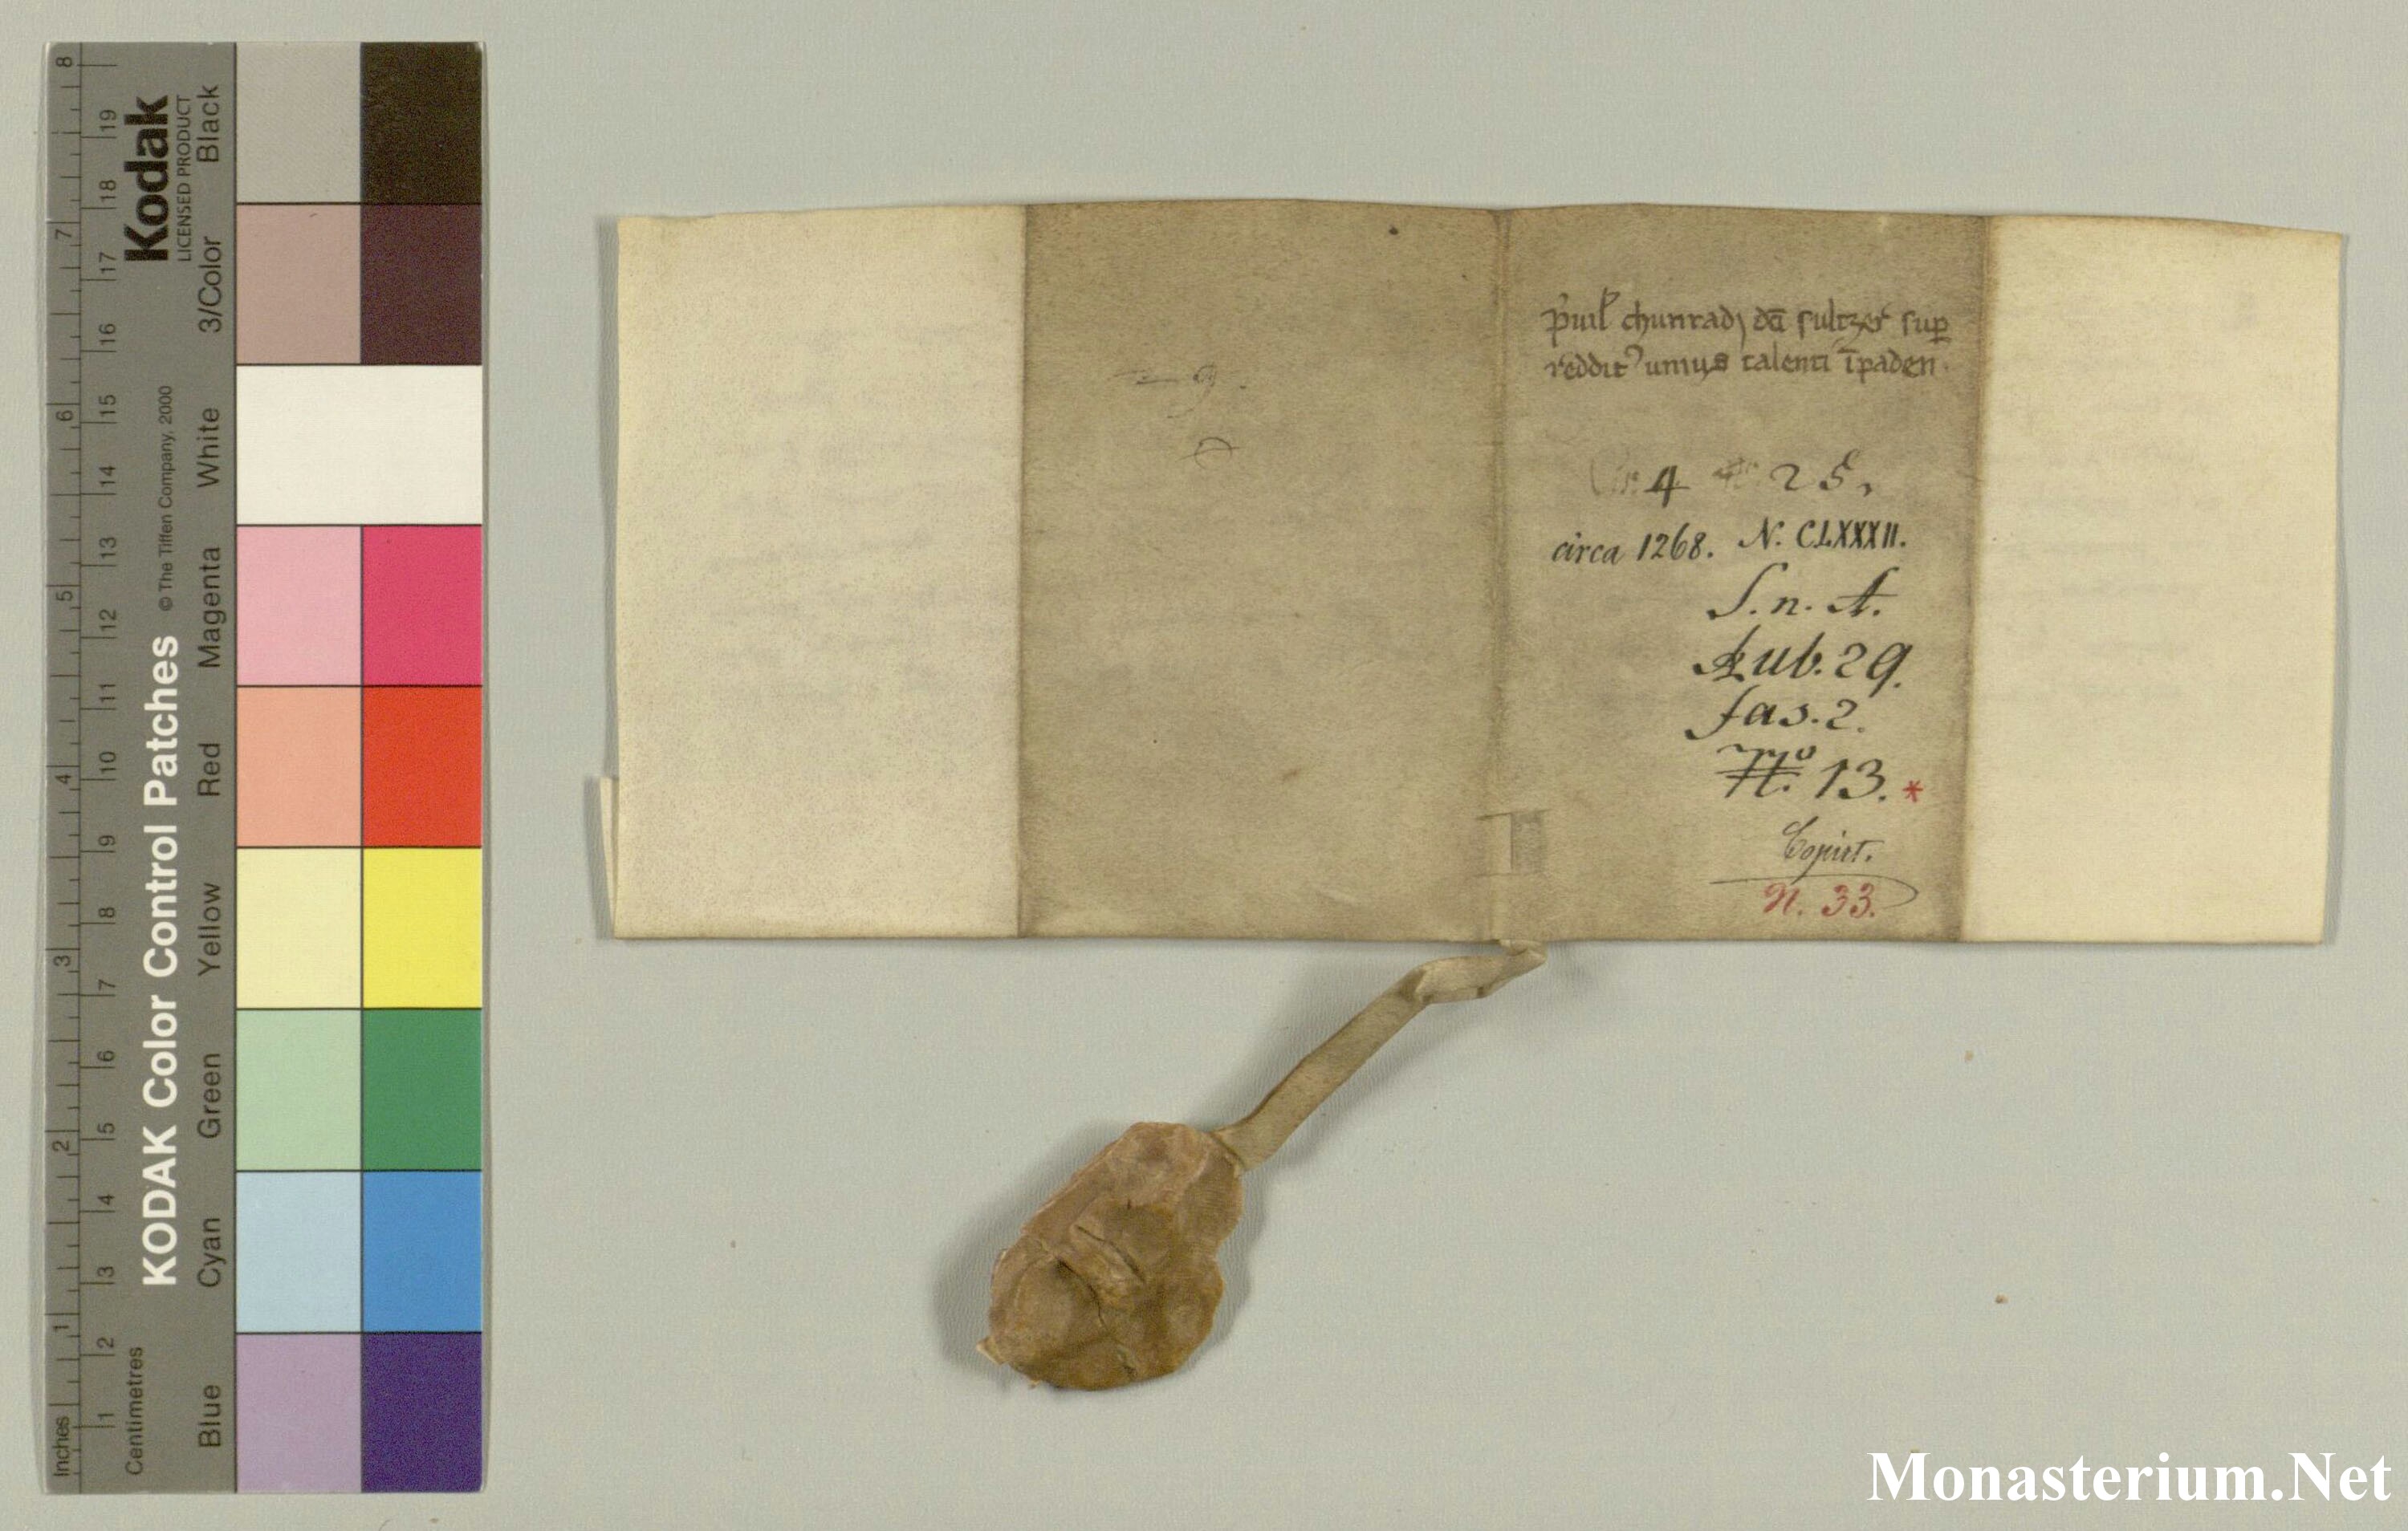 p̾uil chunradj dc̄i sultzer sup̲
reddit᾽ unius talenti ī paden.
4 25,
circa 1268. N. CLXXXII.
S. n. A.
Rub. 29.
fas. 2.
No. 13. *
Copirt.
N. 33.
KODAK Color Control Patches © The Tiffen Company, 2000
Kodak
LICENSED PRODUCT
Blue Cyan Green Yellow Red Magenta White 3/Color Black
Inches 1 2 3 4 5 6 7 8
Centimetres 1 2 3 4 5 6 7 8 9 10 11 12 13 14 15 16 17 18 19
Monasterium.Net